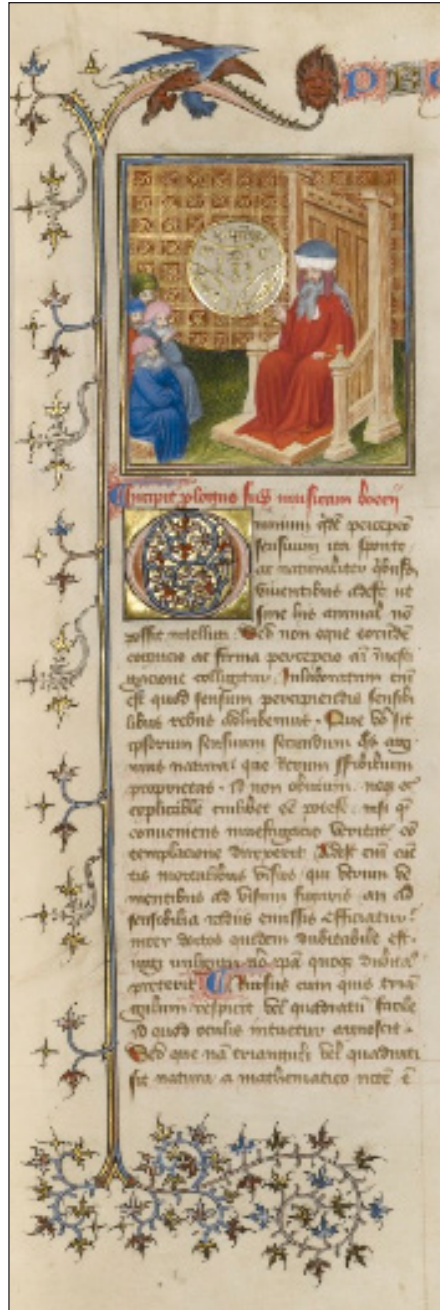 PRO
Incipit plogus sup musicam boecij
Omnium qdē percepcō
sensuum ita sponte
ac naturaliter qbusdā
viventibus adest ut
sine his animal nō
possit intelligi. Sed non eque eorundē
cognicio ac firma percepcio aī īvesti
gacione colligitur. Inlaboratum enī
est quod sensum percipiendis sensibi
libus rebus adhibemus. Que vō sit
ipsorum sensuum secundum qs agi
mus natura que rerum ssibilium
proprietas. non obvium. neqȝ
explicabile cuilibet eē potest. nisi qē
conveniens investigacio veritat cō
templacione direxerit. Adest enī cūc
tis mortalibus visus. qui utrum ve
nientibus ad visum figuris an ad
sensibilia radiis emissis efficiatur.
inter doctos quidem dubitabile est.
ipā quoqȝ dubitac
preterit. Rursus cum quis triā
gulum respicit vel quadratū facile
id quod oculis intuetur agnoscit.
Sed que nā trianguli vel quadrati
sit natura a mathematico necē ē